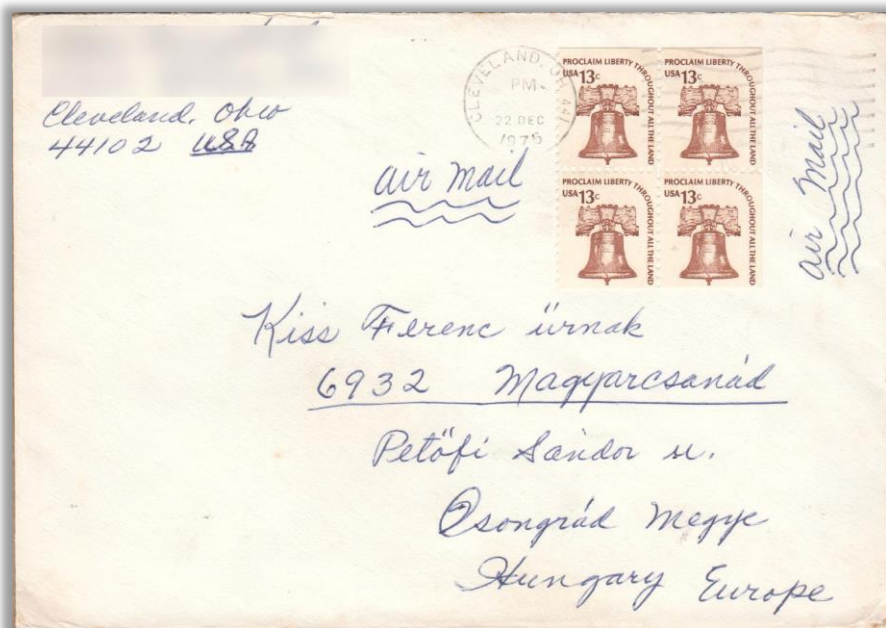 Cleveland, Ohio
44102 USA
CLEVELAND, OH 441
PM
22 DEC
1975
PROCLAIM LIBERTY THROUGHOUT ALL THE LAND
USA 13c
PROCLAIM LIBERTY THROUGHOUT ALL THE LAND
USA 13c
PROCLAIM LIBERTY THROUGHOUT ALL THE LAND
USA 13c
PROCLAIM LIBERTY THROUGHOUT ALL THE LAND
USA 13c
air mail
air mail
Kiss Ferenc úrnak
6932 Magyarcsanád
Petőfi Sándor u.
Csongrád Megye
Hungary Europe